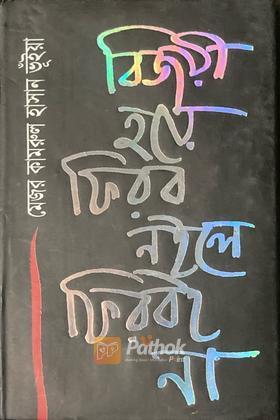 মেজর কামরুল হাসান ভূঁইয়া
বিজয়ী
হয়ে
ফিরব
নইলে
ফিরবই
না
Pathok